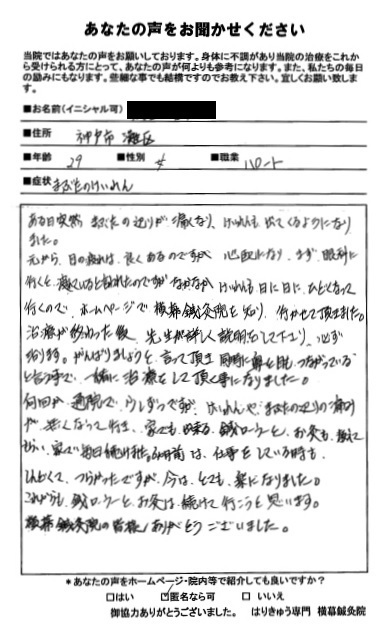 あなたの声をお聞かせください
当院ではあなたの声をお願いしております。身体に不調があり当院の治療をこれか
ら受けられる方にとって、あなたの声が何よりも参考になります。また、私たちの毎日
の励みにもなります。些細な事でも結構ですのでお教え下さい。宜しくお願い致しま
す。
■お名前(イニシャル可)
■住所 神戸市 灘区
■年齢 29 ■性別 女 ■職業 パート
■症状 まぶたのけいれん
ある日突然 まぶたの辺りが 痛くなり、けいれんも 出てくるようになり
ました。
元から、目の疲れは、良くあるのですが 心配になり、まず、眼科に
行くと、疲れていると言われたのですが なかなか けいれんも 日に日に、ひどくなって
行くので、ホームページで 横幕鍼灸院を 知り、行かせて頂きました。
治療が 終わった後、先生が詳しく 説明をして下さり、必ず
治ります。がんばりましょうと、言って頂き 同時に鼻と目も つながっている
と言う事で、一緒に 治療をして頂く事になりました。
何回か 通院で、うしずつですが、けいれんや、まぶたの辺りの 痛み
が 無くなって行き、家でも 出来る、鍼ローラーと、お灸も、教えて
もらい、家で毎日続けました。は、仕事をしている時も、
しんどくて、つらかったですが、今は、とても、楽になりました。
これからも、鍼ローラーと、お灸は、続けて 行こうと 思います。
横幕鍼灸院の皆様、ありがとうございました。
*あなたの声をホームページ・院内等で紹介しても良いですか?
□はい ☑匿名なら可 □いいえ
御協力ありがとうございました。 はりきゅう専門 横幕鍼灸院